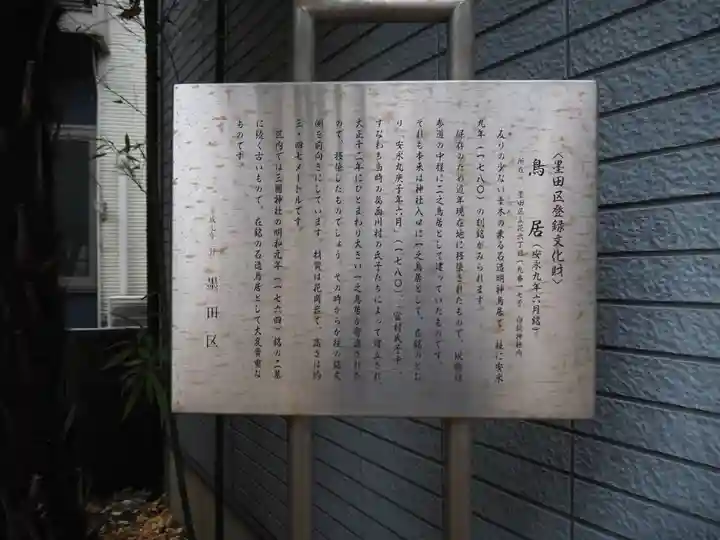 〈墨田区登録文化財〉
鳥居(安永九年六月銘)
所在 墨田区立花六丁目一九番一七号 白髭神社内
反りの少ない笠木の乗る石造明神鳥居で、柱に安永
九年(一七八〇)の刻銘がみられます。
保存のため近年現在地に移築されたもので、以前は
参道の中程に二之鳥居として建っていたものです。
それも本来は神社入口に一之鳥居として、在銘のとお
り「安永九庚子年六月」(一七八〇)、「當村氏子中」
すなわち当時の葛西川村の氏子たちによって建立され
大正十二年にひとまわり大きい一之鳥居が奉造された
ので、移築したものでしょう。その時から左柱の銘文
側を前向きにしています。材質は花崗岩で、高さは約
三・四七メートルです。
区内では三囲神社の明和元年(一七六四)銘の二基
に随く古いもので、在銘の石造鳥居として大変貴重な
ものです。
墨田区